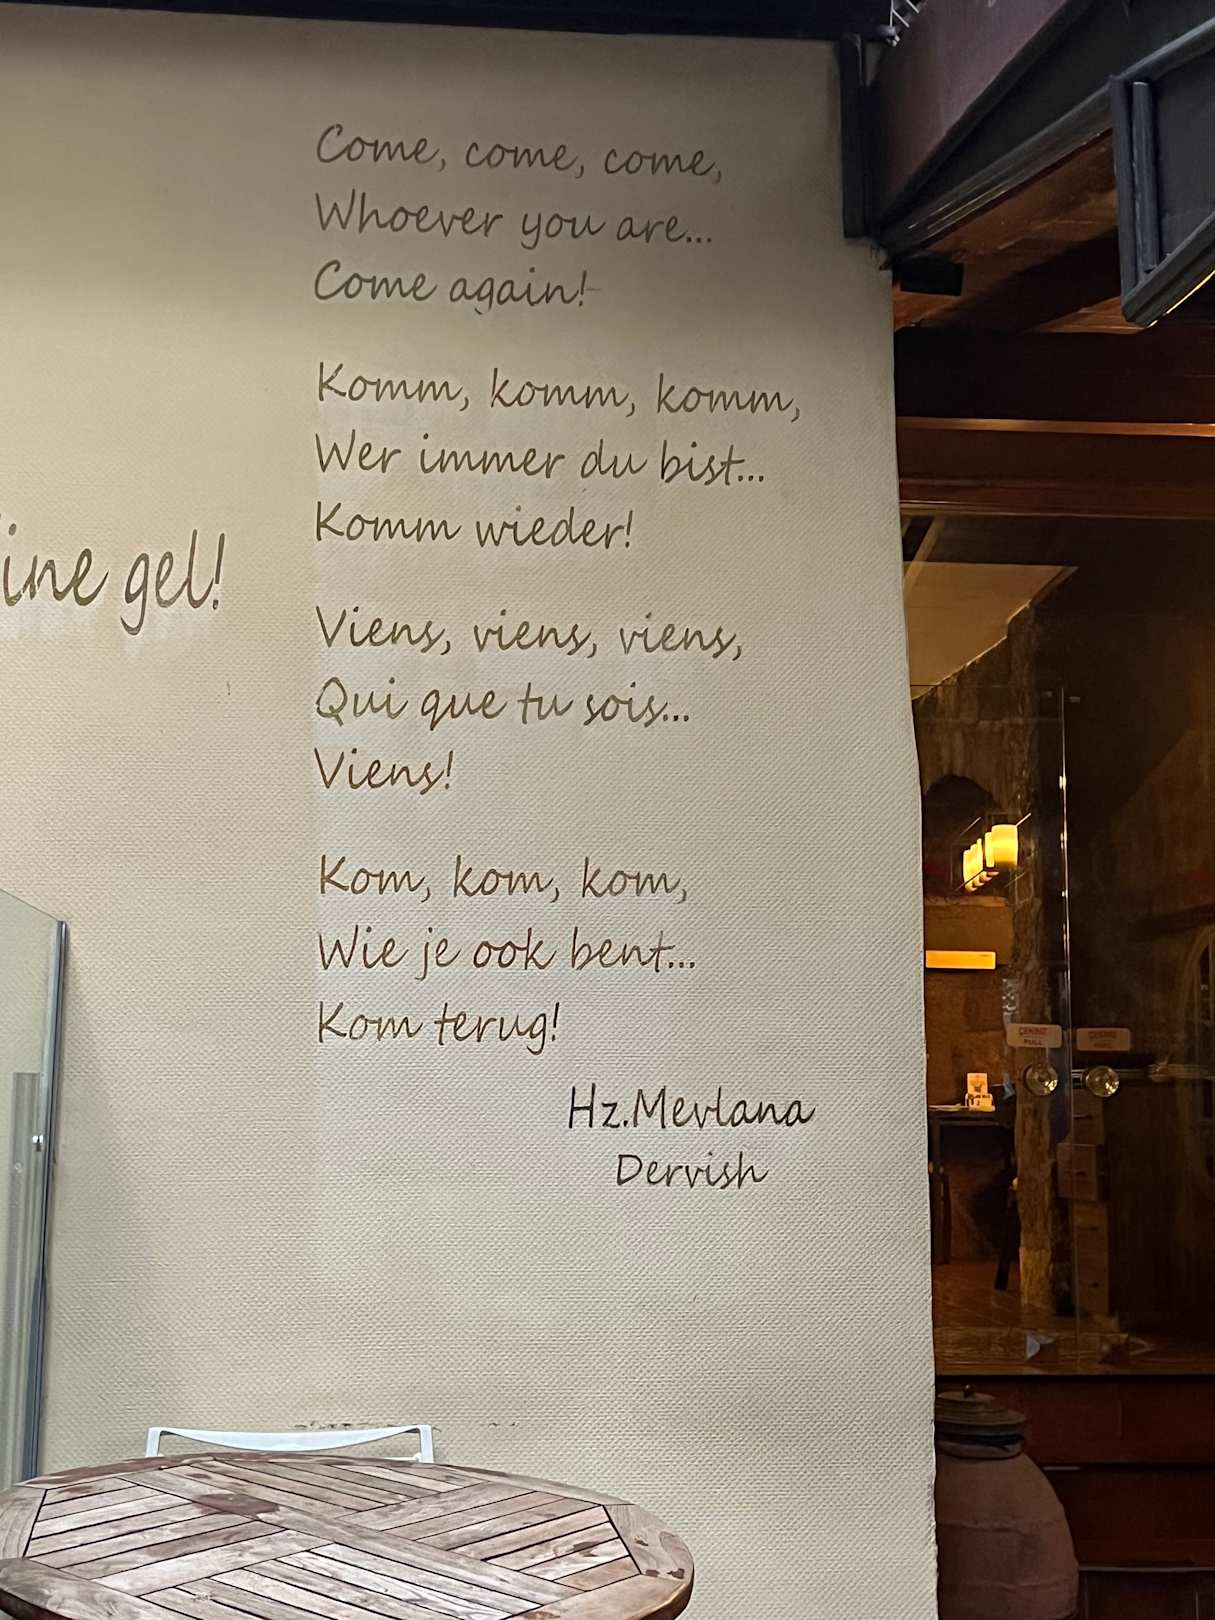 Come, come, come,
Whoever you are...
Come again!
Komm, komm, komm,
Wer immer du bist...
Komm wieder!
gel!
Viens, viens, viens,
Qui que tu sois...
Viens!
Kom, kom, kom,
Wie je ook bent...
Kom terug!
Hz.Mevlana
Dervish
ÇEKİNİZ
PULL